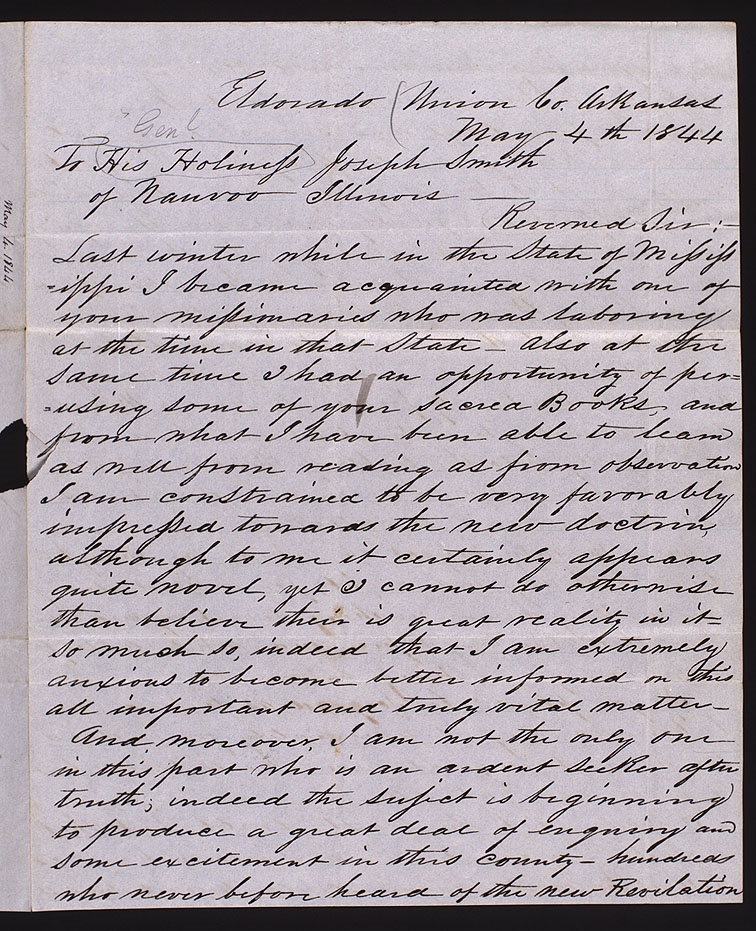 Eldorado (Union Co. Arkansas
May 4th 1844
"Genl.
To His Holiness Joseph Smith
of Nauvoo Illinois —
Reverned Sir:-
Last winter while in the State of Mississ
=ippi I became acquainted with one of
your missionaries who was laboring
at the time in that State - also at the
same time I had an opportunity of per=
=using some of your sacred Books, and
from what I have been able to learn
as well from reading as from observation
I am constrained to be very favorably
impressed towards the new doctrin,
although to me it certainly appears
quite novel, yet I cannot do otherwise
than believe their is great reality in it-
so much so, indeed that I am extremely
anxious to become better informed on this
all important and truly vital matter-
And, moreover, I am not the only one
in this part who is an ardent seeker after
truth; indeed the sufict is beginning
to produce a great deal of enquiry and
some excitement in this county - hundreds
who never before heard of the new Revilation
May 4. 1844